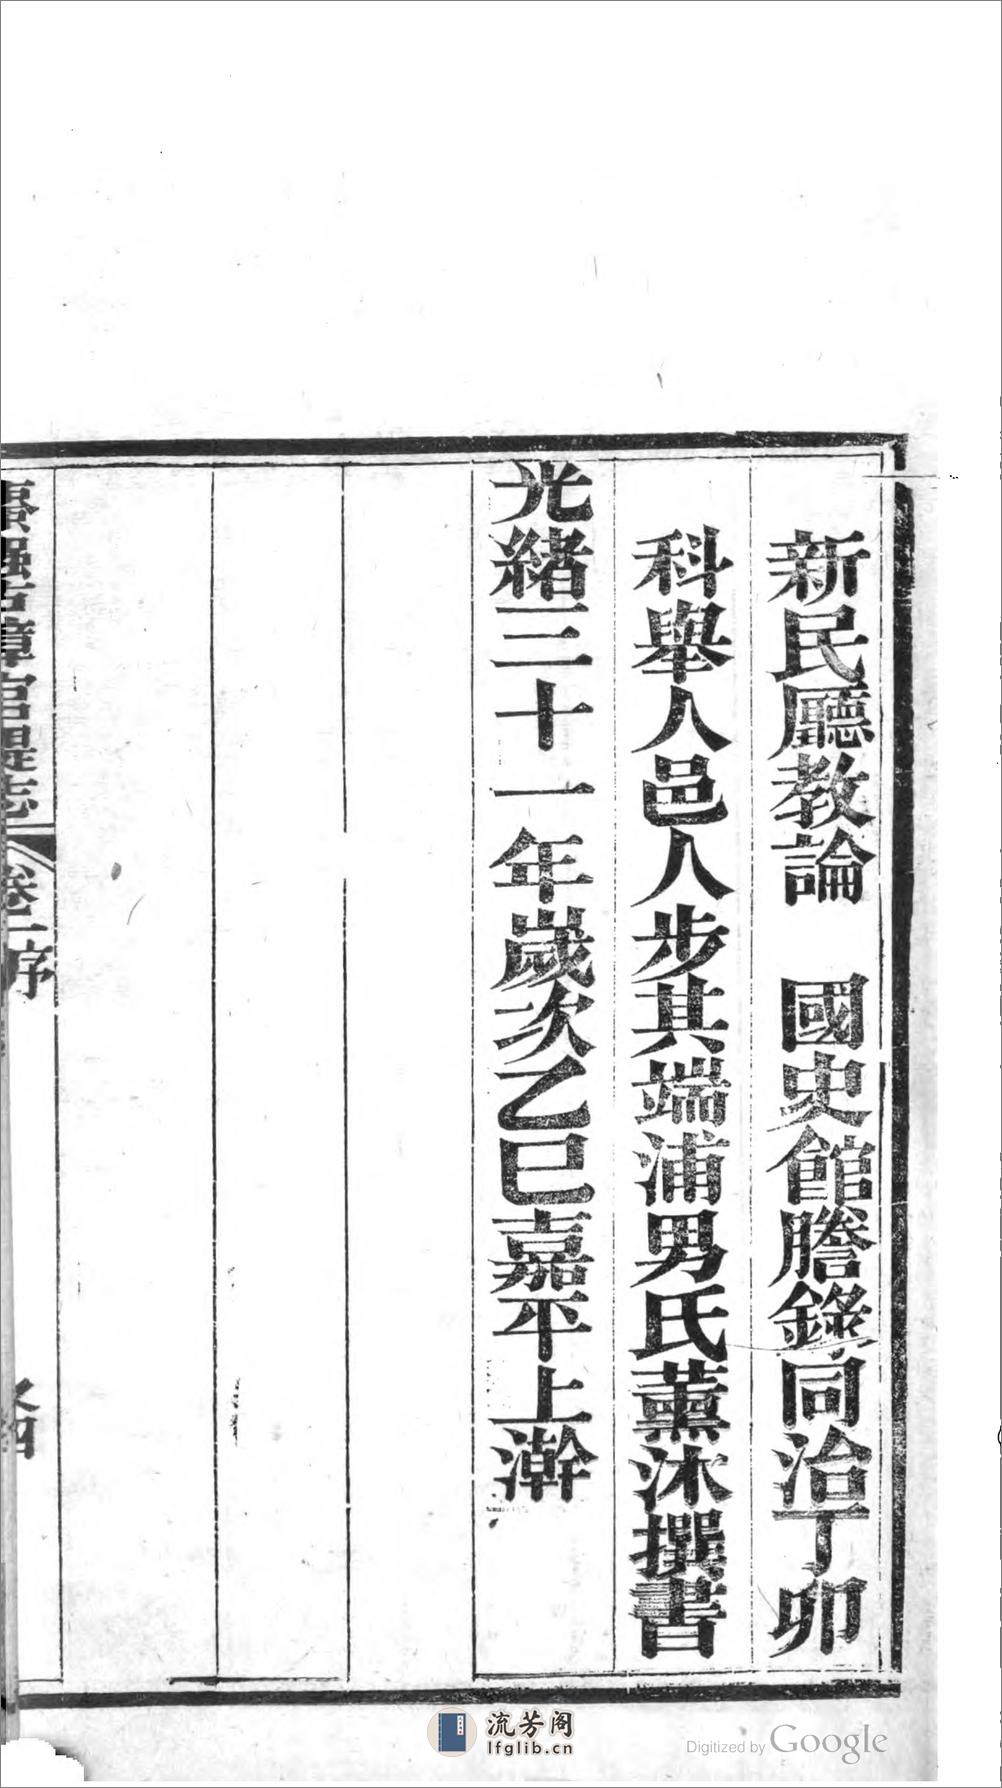 新民廳教論　國史館謄錄同治丁卯
科舉人邑人步其端浦男氏薰沐撰書
光緒三十一年歲次乙巳嘉平上澣
棗强古漳官隄志
卷一序
四
流芳阁
lfglib.cn
Digitized by Google